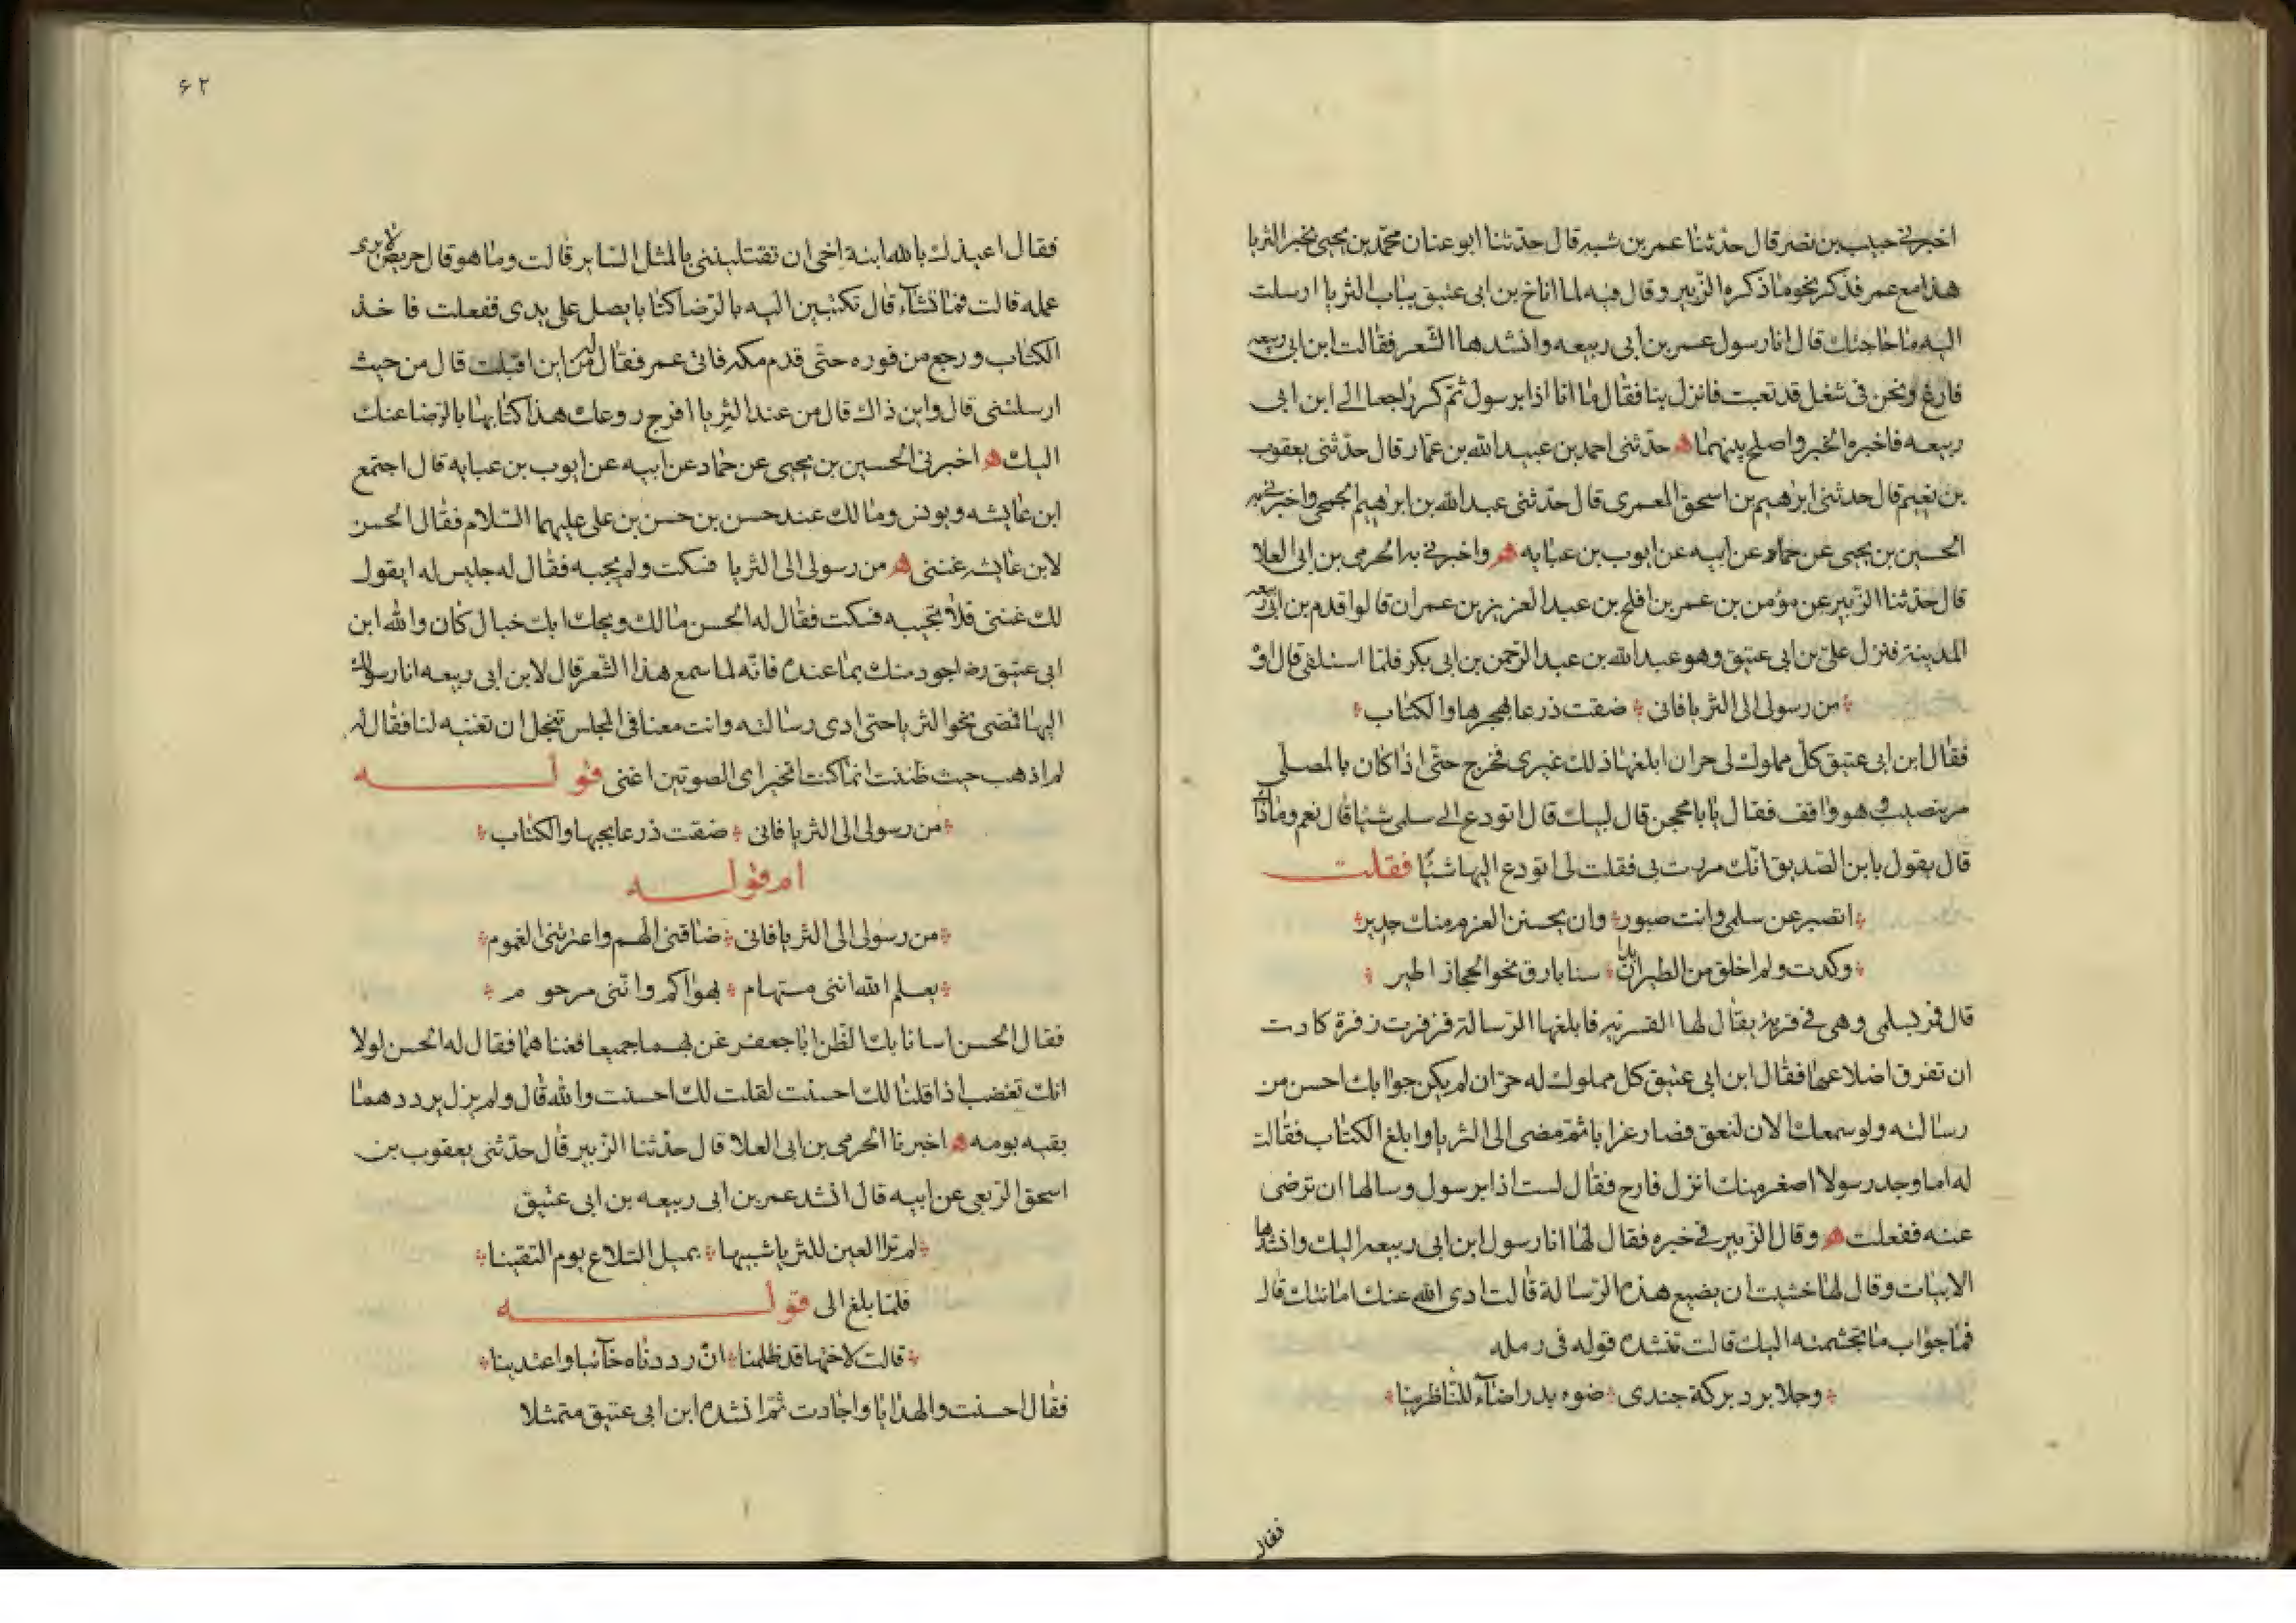 اخبرني حبيب بن نصر قال حدثنا عمر بن شبه قال حدثنا ابو غسان محمد بن يحيى بخبر الثريا
هذا مع عمر فذكر نحو ما ذكره الزبير وقال فيه لما اناخ بن ابي عتيق بباب الثريا ارسلت
اليه ما حاجتك قال انا رسول عمر بن ابي ربيعه وانشدها الشعر فقالت ابن ابي ربيعه
فارغ ونحن في شغل قد تعبت فانزل بنا فقال ما انا اذا برسول ثم كر راجعا الى ابن ابي
ربيعه فاخبره الخبر واصلح بينهما ه حدثني احمد بن عبيد الله بن عمار قال حدثني يعقوب
بن نعيم قال حدثني ابرهيم بن اسحق المعمري قال حدثني عبد الله بن ابرهيم الجمحي واخبرني به
الحسين بن يحيى عن حماد عن ابيه عن ايوب بن عبايه ه واخبرني به الحرمي بن ابي العلا
قال حدثنا الزبير عن مؤمن بن عمر بن افلح بن عبد العزيز بن عمران قالوا قدم بن ابي ربيعه
المدينة فنزل على بن ابي عتيق وهو عبد الله بن عبد الرحمن بن ابي بكر فلما استلقى قال اوه
من رسولي الى الثريا فاني ضقت ذرعا بهجرها والكتاب
فقال ابن ابي عتيق كل مملوك لي حر ان ابلغها ذلك غيري فخرج حتى اذا كان بالمصلى
مر بنصيب وهو واقف فقال يابا محجن قال لبيك قال اتودع الى سلمى شيئا قال نعم وما ذاك
قال يقول يا بن الصديق انك مررت بي فقلت لي اتودع اليها شيئا فقلت
اتصبر عن سلمى وانت صبور وان بحسن العزم منك جدير
وكدت ولم اخلق من الطير ان بدا سنا بارق نحو الحجاز اطير
قال فمر بسلمى وهي في قرية يقال لها القسريه فابلغها الرسالة فزفرت زفرة كادت
ان تفرق اضلاعها فقال ابن ابي عتيق كل مملوك له حر ان لم يكن جوابك احسن من
رسالته ولو سمعك الان لنعق فصار غرابا ثم مضى الى الثريا وابلغ الكتاب فقالت
له اما وجد رسولا اصغر منك انزل فارح فقال لست اذا برسول وسالها ان ترضى
عنه ففعلت ه وقال الزبير في خبره فقال لها انا رسول ابن ابي ربيعه اليك وانشدها
الابيات وقال لها خشيت ان يضيع هذه الرسالة قالت ادى الله عنك امانتك قال
فما جواب ما تجشمته اليك قالت تنشده قوله في رمله
وجلا برد بركة جندي ضوء بدر اضآء للناظرينا
فقال
٦٢
فقال اعيذك بالله ابنة اخي ان تقتلينني بالمثل الساير قالت وما هو قال حريص لا يرى
عمله قالت فما تشآء قال تكتبين اليه بالرضا كتابا يصل على يدي ففعلت فاخذ
الكتاب ورجع من فوره حتى قدم مكه فاتى عمر فقال له من اين اقبلت قال من حيث
ارسلتني قال واين ذاك قال من عند الثريا افرج روعك هذا كتابها بالرضا عنك
اليك ه اخبرني الحسين بن يحيى عن حماد عن ابيه عن ايوب بن عبايه قال اجتمع
ابن عايشه ويونس ومالك عند حسن بن حسن بن علي عليهما السلام فقال الحسن
لابن عايشه غنني ه من رسولي الى الثريا فسكت ولم يجبه فقال له جليس له ايقول
لك غنني فلا تجيبه فسكت فقال له الحسن مالك ويحك ابك خبال كان والله ابن
ابي عتيق رضه اجود منك بما عنده فانه لما سمع هذا الشعر قال لابن ابي ربيعه انا رسولك
اليها فمضى نحو الثريا حتى ادى رسالته وانت معنا في المجلس تبخل ان تغنيه لنا فقال له
لم اذهب حيث ظننت انما كنت اتخير اي الصوتين اغني قوله
من رسولي الى الثريا فاني ضقت ذرعا بجها والكتاب
ام قوله
من رسولي الى الثريا فاني ضاقني الهم واعترتني الغموم
يعلم الله انني مستهام بهواكم وانني مرحوم
فقال الحسن اسانا بك الظن ابا جعفر غن بهما جميعا فغناهما فقال له الحسن لولا
انك تغضب اذا قلنا لك احسنت لقلت لك احسنت والله قال ولم يزل يرددهما
بقيه يومه ه اخبرنا الحرمي بن ابي العلا قال حدثنا الزبير قال حدثني يعقوب بن
اسحق الربعي عن ابيه قال انشد عمر بن ابي ربيعه بن ابي عتيق
لم تر العين للثريا شبيها بميل التلاع يوم التقينا
فلما بلغ الى قوله
قالت لاختها قد ظلمنا ان رددناه خآئبا واعتدينا
فقال احسنت والهدايا واجادت ثم انشده ابن ابي عتيق متمثلا